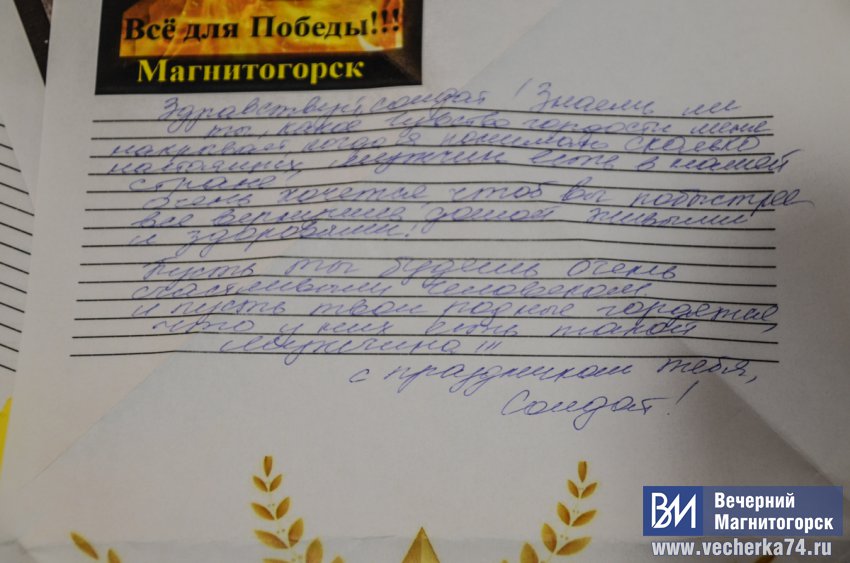 Всё для Победы!!!
Магнитогорск
Здравствуй, солдат! Знаешь ли
ты, какие чувства гордости меня
накрывает когда я понимаю сколько
настоящих мужчин есть в нашей
стране!
Очень хочется, чтоб вы побыстрее
все вернулись домой живыми
и здоровыми!
Пусть ты будешь очень
счастливым человеком
и пусть твои родные гордятся,
что у них есть такой
мужчина!!!
с праздником тебя,
Солдат!
ВМ Вечерний
Магнитогорск
www.vecherka74.ru